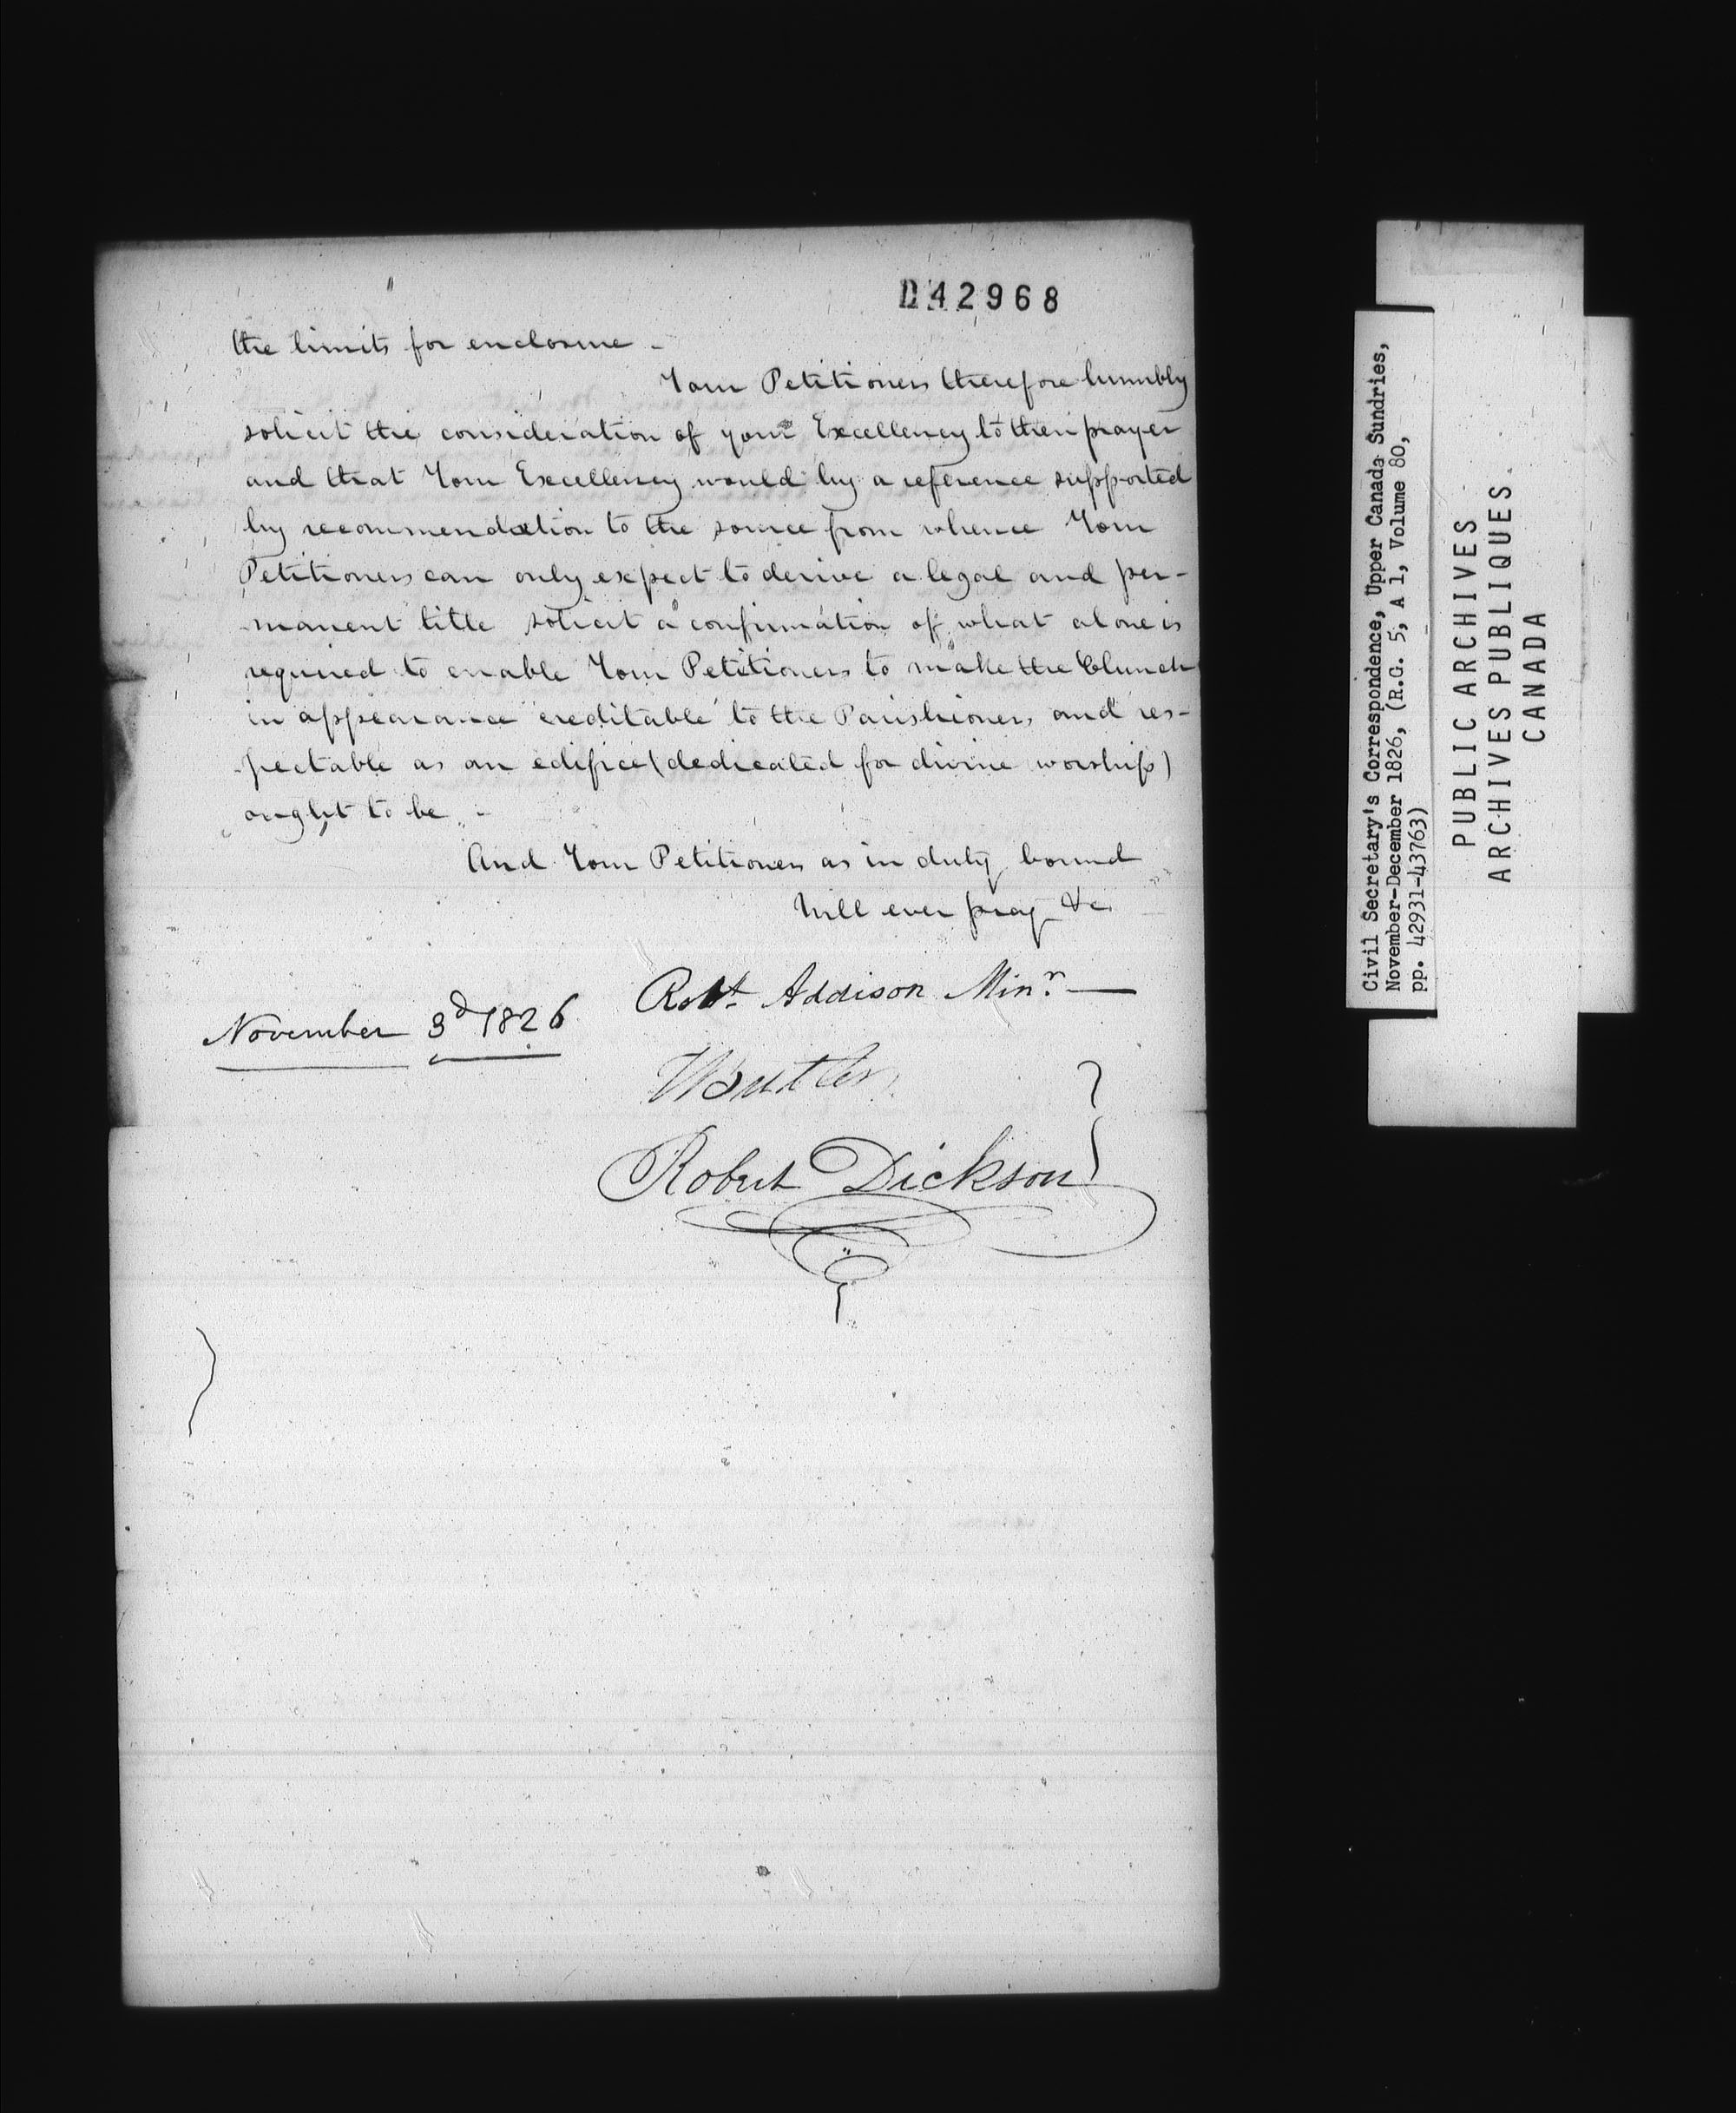 D42968
the limits for enclosure -
Your Petitioners therefore humbly
solicit the consideration of your Excellency to their prayer
and that Your Excellency would by a reference supported
by recommendation to the source from whence Your
Petitioners can only expect to derive a legal and per-
manent title solicit a confirmation of what alone is
required to enable Your Petitioners to make the Church
in appearance creditable to the Parishioners and res-
pectable as an edifice (dedicated for divine worship)
ought to be -
And Your Petitioners as in duty bound
Will ever pray &c
Robt. Addison Minr. —
November 3d 1826
Butler
Robert Dickson
Civil Secretary's Correspondence, Upper Canada Sundries,
November-December 1826, (R.G. 5, A 1, Volume 80,
pp. 42931-43763)
PUBLIC ARCHIVES
ARCHIVES PUBLIQUES
CANADA